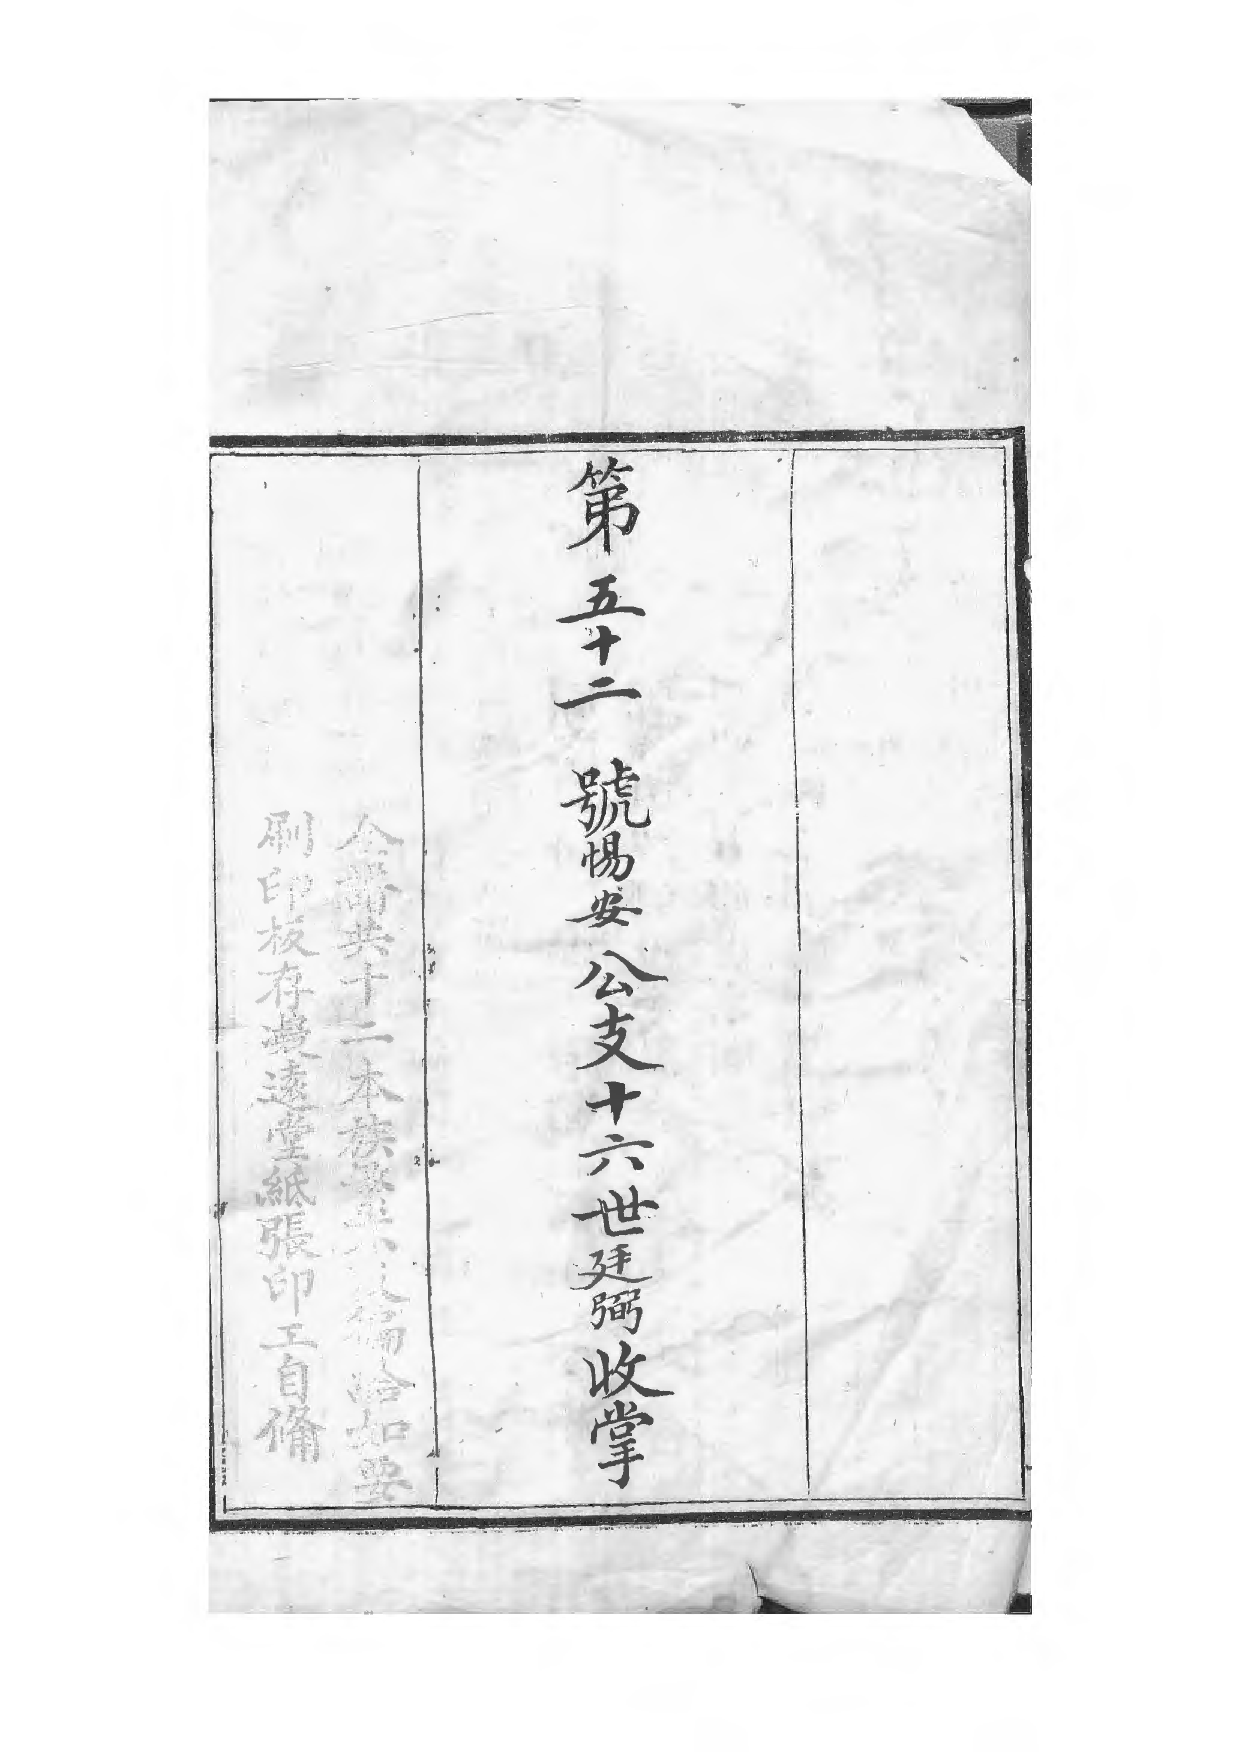 第五十二號惕安公支十六世廷弼收掌
全譜共十二本族無
給如要
刷印板存凝遠堂紙張印工自備